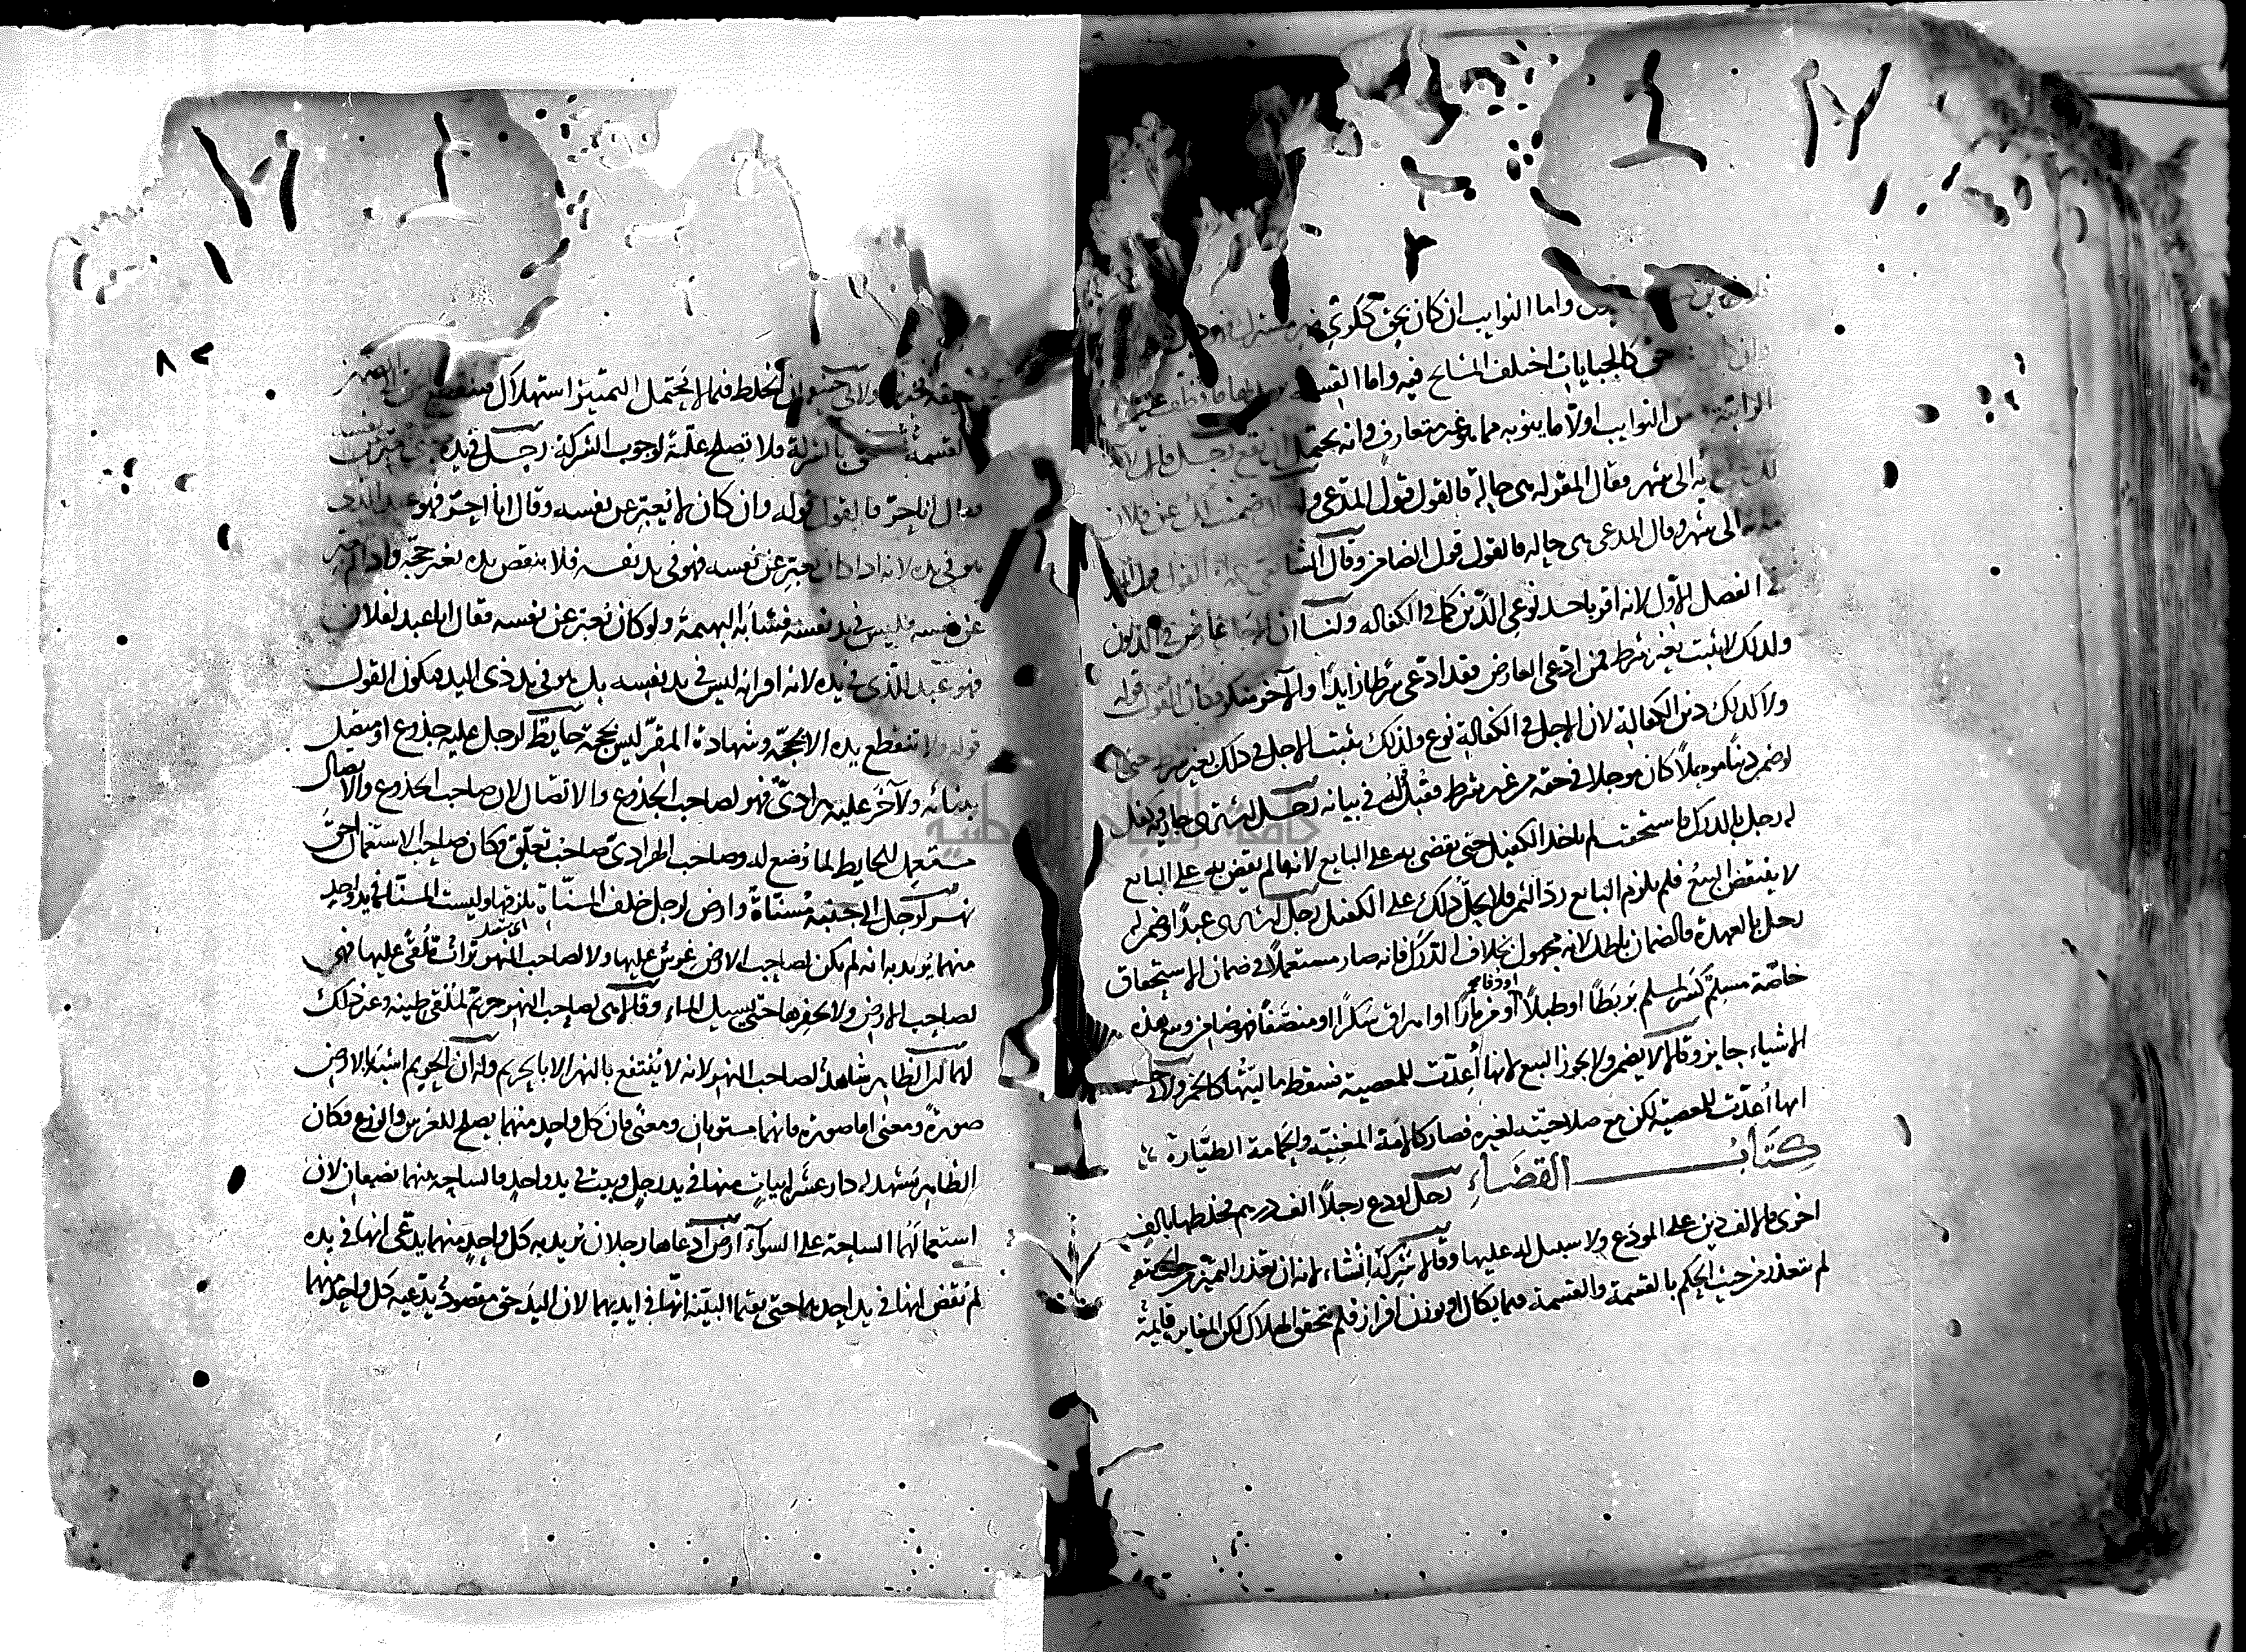 واما النوايب ان كان بحق ككري
حق كالجبايات اختلف المشايخ فيه واما القسمة
الراتبة النوايب اولا ما ينوبه مما هو غير متعارف فانه يحتمل رجل قال
الى شهر فقال المقر له هي حالة فالقول قول المدعي ولو قال ضمنت لك عن فلان
الى شهر وقال المدعي هي حالة فالقول قول الضامن وقال الشافعي
في الفصل الاول لانه اقر باحد نوعي الدين كما في الكفالة ولنا ان عارض في الديون
ولذلك لا يثبت بغير شرط فمن ادعى العارض فقد ادعى شرطا زايدا والاخر منكر فكان القول قوله
ولا كذلك دين الكفالة لان الاجل في الكفالة نوع ولذلك يثبت الاجل في ذلك بغير شرط حتى
لو ضمن دينا موجلا كان موجلا في حقه من غير شرط فقبل قوله في بيانه رجل اشترى جارية فكفل
له رجل بالدرك فاستحقت لم ياخذ الكفيل حتى يقضى به على البايع لانه ما لم يقض به على البايع
لا ينتقض البيع فلم يلزم البايع رد الثمن فلا يجل ذلك على الكفيل رجل اشترى عبدا فضمن له
رجل بالعهدة فالضمان باطل لانه مجهول بخلاف الدرك فانه صار مستعملا في ضمان الاستحقاق
خاصة مسلم كسر لمسلم بربطا او طبلا او مزمارا او اهراق سكرا او منصفا فهو ضامن وبيع هذه
الاشياء جايز وقالا لا يضمن ولا يجوز البيع لانها اعدت للمعصية فسقط ماليتها كالخمر وله
انها اعدت للمعصية لكن مع صلاحيته لغيره فصار كالامة المغنية والحمامة الطيارة
كتاب القضاء رجل اودع رجلا الف درهم فخلطها بالف
اخرى فالالف دين على المودع ولا سبيل له عليها وقالا شركه ان شاء لانه ان تعذر التميز
لم يتعذر من حيث الحكم بالقسمة والقسمة فيما يكال او يوزن افراز فلم يتحقق الهلاك لكن المغايرة قايمة
ولابي حنيفة ان الخلط فيما لا يحتمل التميز استهلاك
القسمة بالشركة فلا تصلح علة لوجوب الشركة رجل في يده
فقال انا حر فالقول قوله وان كان لا يعبر عن نفسه وقال انا حر فهو عبد للذي
هو في يده لانه اذا كان يعبر عن نفسه فهو في يد نفسه فلا ينقض يده بغير حجة واذا لم يعبر
عن نفسه فليس في يد نفسه فشابه البهيمة ولو كان يعبر عن نفسه فقال انا عبد لفلان
فهو عبد للذي في يده لانه اقر انه ليس في يد نفسه بل هو في يد ذي اليد ويكون القول
قوله ولا تنقطع يده الا بحجة وشهادة المقر ليس بحجة حايط لرجل عليه جذوع او متصل
ببنائه ولاخر عليه هرادى فهو لصاحب الجذوع والاتصال لان صاحب الجذوع والاتصال
مستعمل للحايط لما وضع له وصاحب الهرادى صاحب تعلق فكان صاحب الاستعمال احق
نهر لرجل الى جنبه مسناة وارض لرجل خلف المسناة يلزقها وليست المسناة في يد واحد
منهما يريد به انه لم يكن لصاحب الارض غرس عليها ولا لصاحب النهر تراب ملقى عليها فهي
لصاحب الارض ولا يحفرها حتى يسيل الماء وقالا هي لصاحب النهر حريم لملقى طينه وغير ذلك
لهما ان الظاهر شاهد لصاحب النهر لانه لا ينتفع بالنهر الا بالحريم وله ان الحريم اشبه بالارض
صورة ومعنى اما صورة فانهما مستويان ومعنى فان كل واحد منهما يصلح للغرس والزرع فكان
الظاهر يشهد له دار عشر ابيات منها في يد رجل وبيت في يد واحد فالساحة بينهما نصفان لان
استعمالهما الساحة على السواء ارض ادعاها رجلان يريد به كل واحد منهما يدعي انها في يده
لم يقض انها في يد احدهما حتى يقيما البينة انها في ايديهما لان اليد حق مقصود يدعيه كل واحد منهما